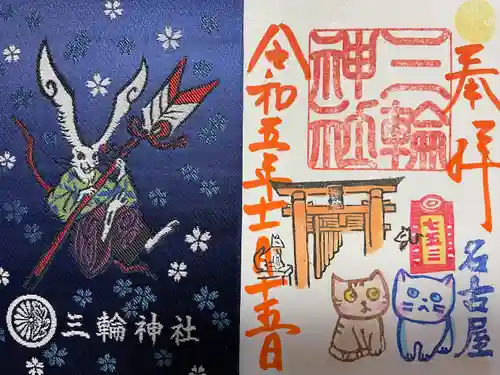 三輪神社
三輪神社
奉拝
三輪
神社
七五三
名古屋
令和五年十一月十五日